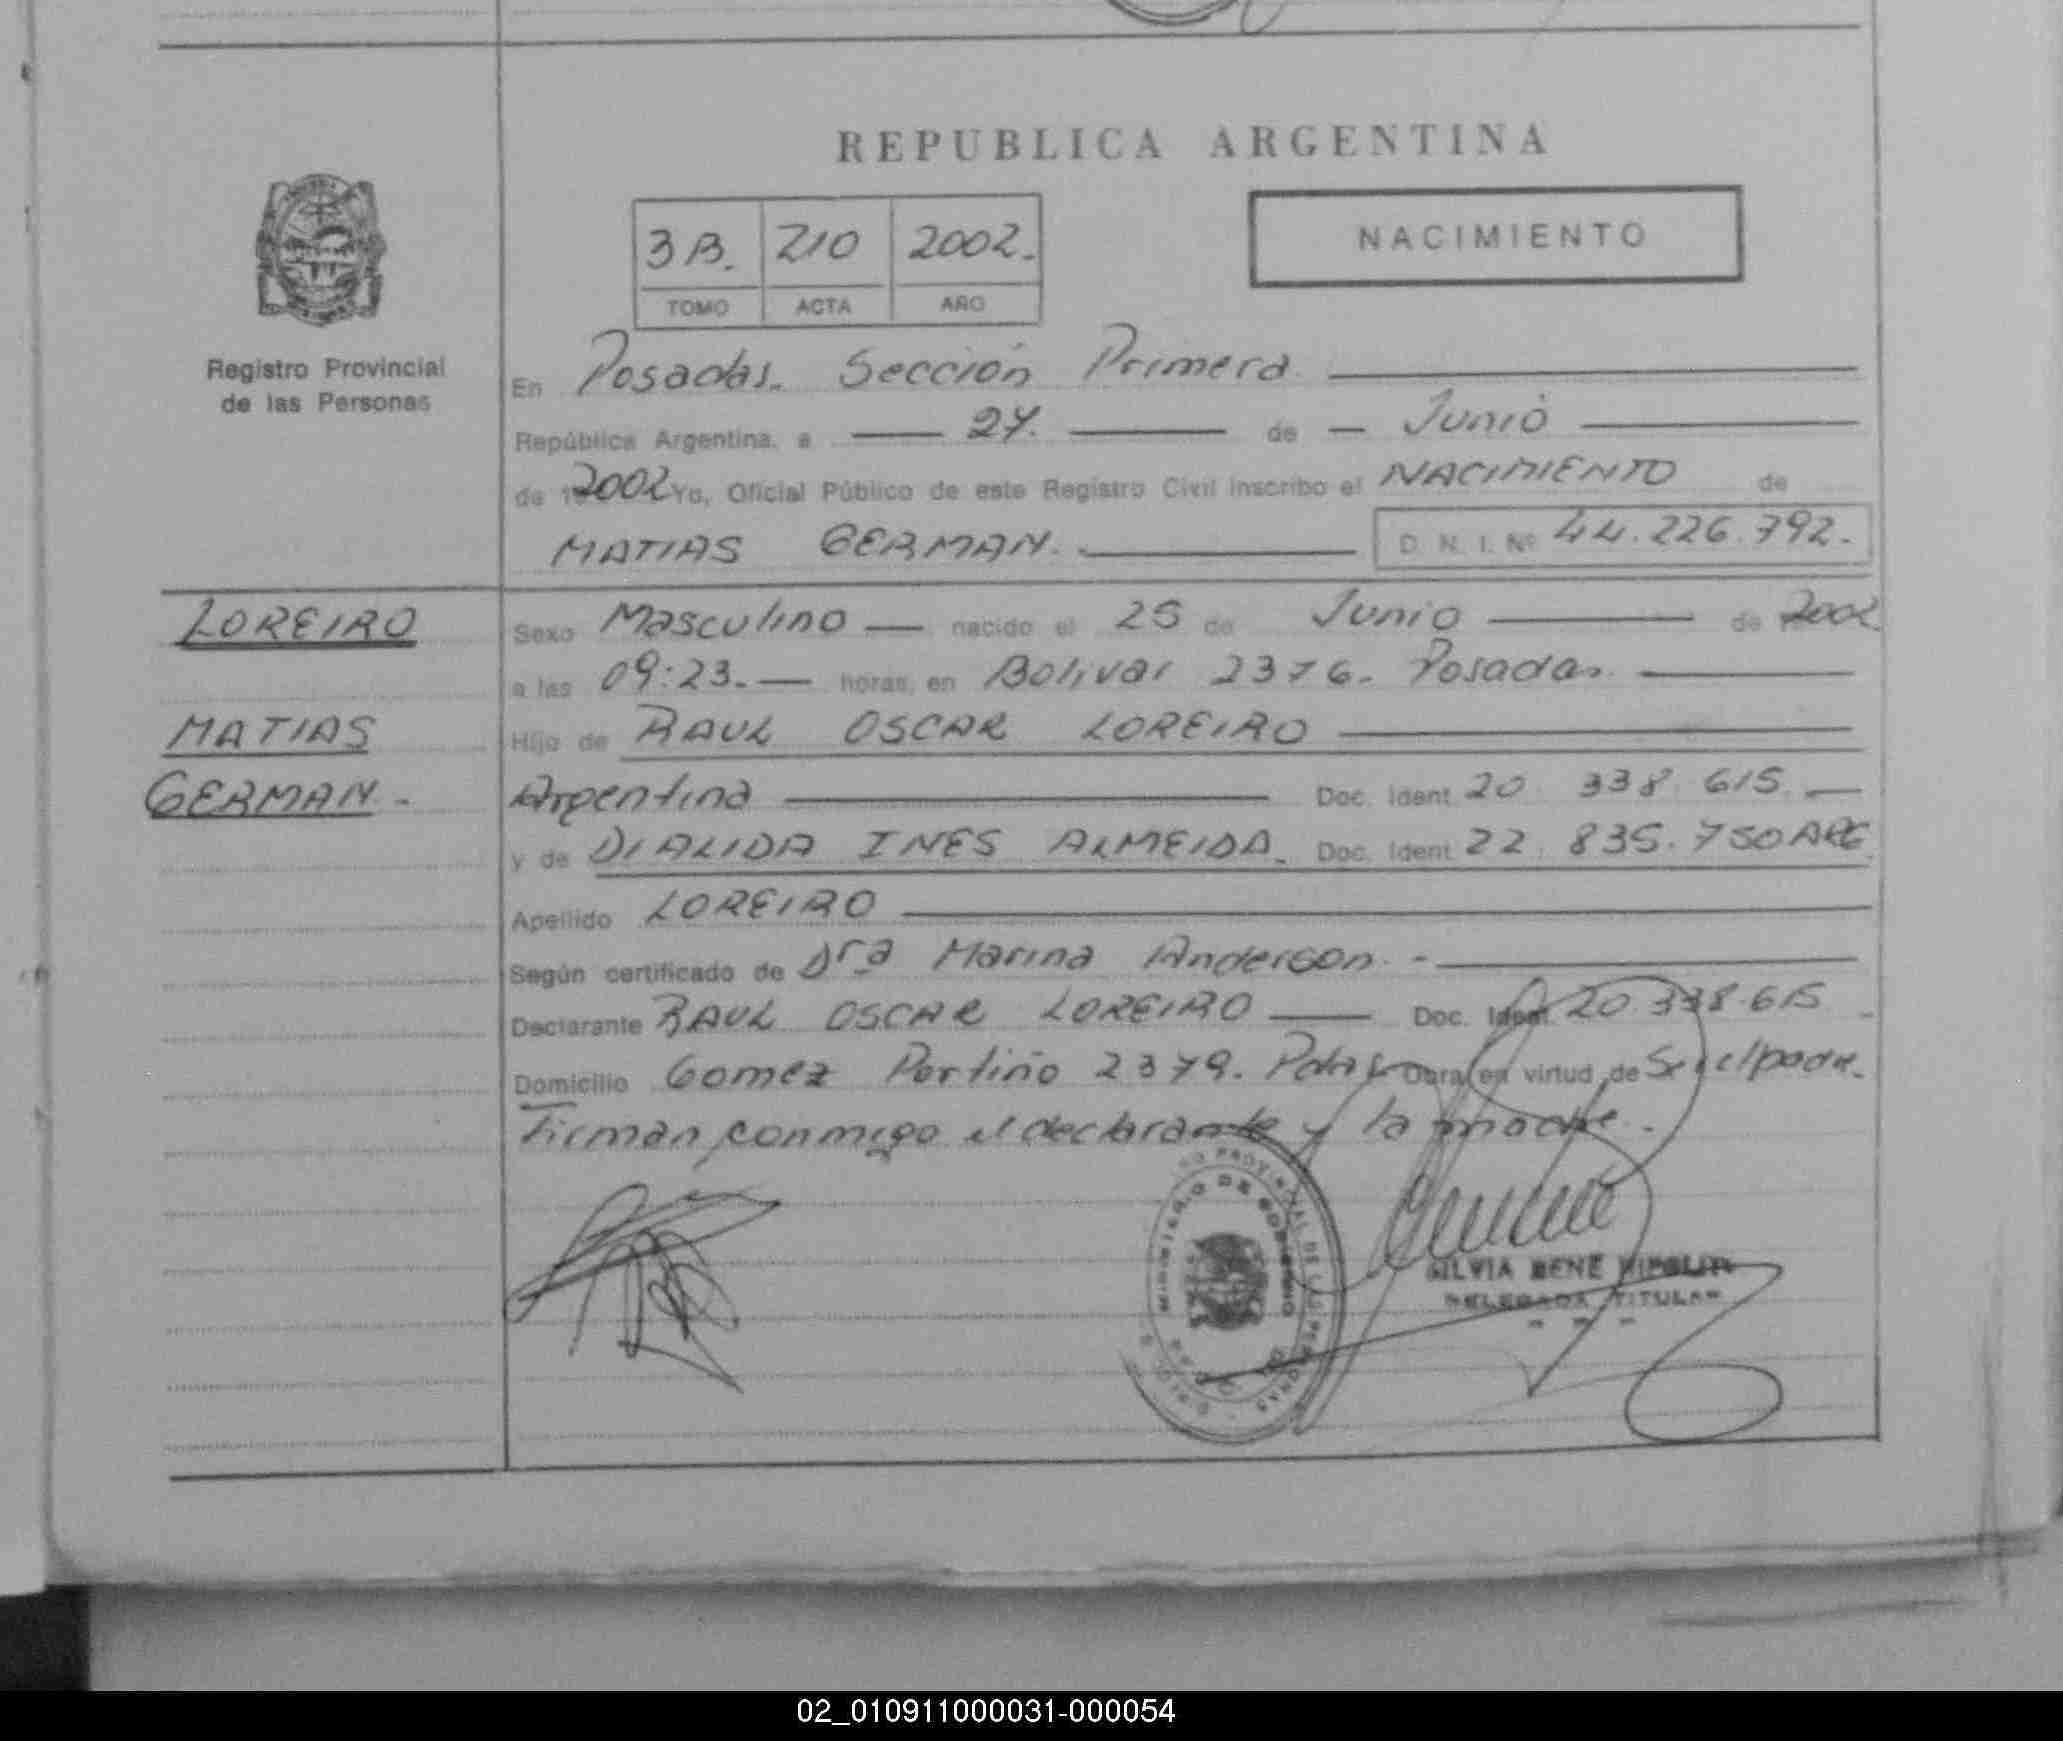 REPUBLICA ARGENTINA
3B. 210 2002.
TOMO ACTA AÑO
NACIMIENTO
Registro Provincial
de las Personas
En Posadas. Sección Primera
República Argentina, a 27. de Junio
de 19 2002 Yo, Oficial Público de este Registro Civil inscribo el NACIMIENTO de
MATIAS GERMAN. D. N. I. Nº 44.226.792.
LOREIRO
MATIAS
GERMAN.-
Sexo Masculino nacido el 25 de Junio de 2002
a las 09:23.- horas, en Bolivar 2376. Posadas.
Hijo de RAUL OSCAR LOREIRO
Argentina Doc. Ident 20 338 615.
y de DIALIDA INES ALMEIDA. Doc. Ident 22.835.750 ARG
Apellido LOREIRO
Según certificado de Dra Marina Anderson.-
Declarante RAUL OSCAR LOREIRO Doc. Ident 20.338.615
Domicilio Gomez Portiño 2379. Obra en virtud de Ser el padre.
Firman conmigo el declarante y la madre.
MINISTERIO DE GOBIERNO
SILVIA
DELEGADA TITULAR
02_010911000031-000054